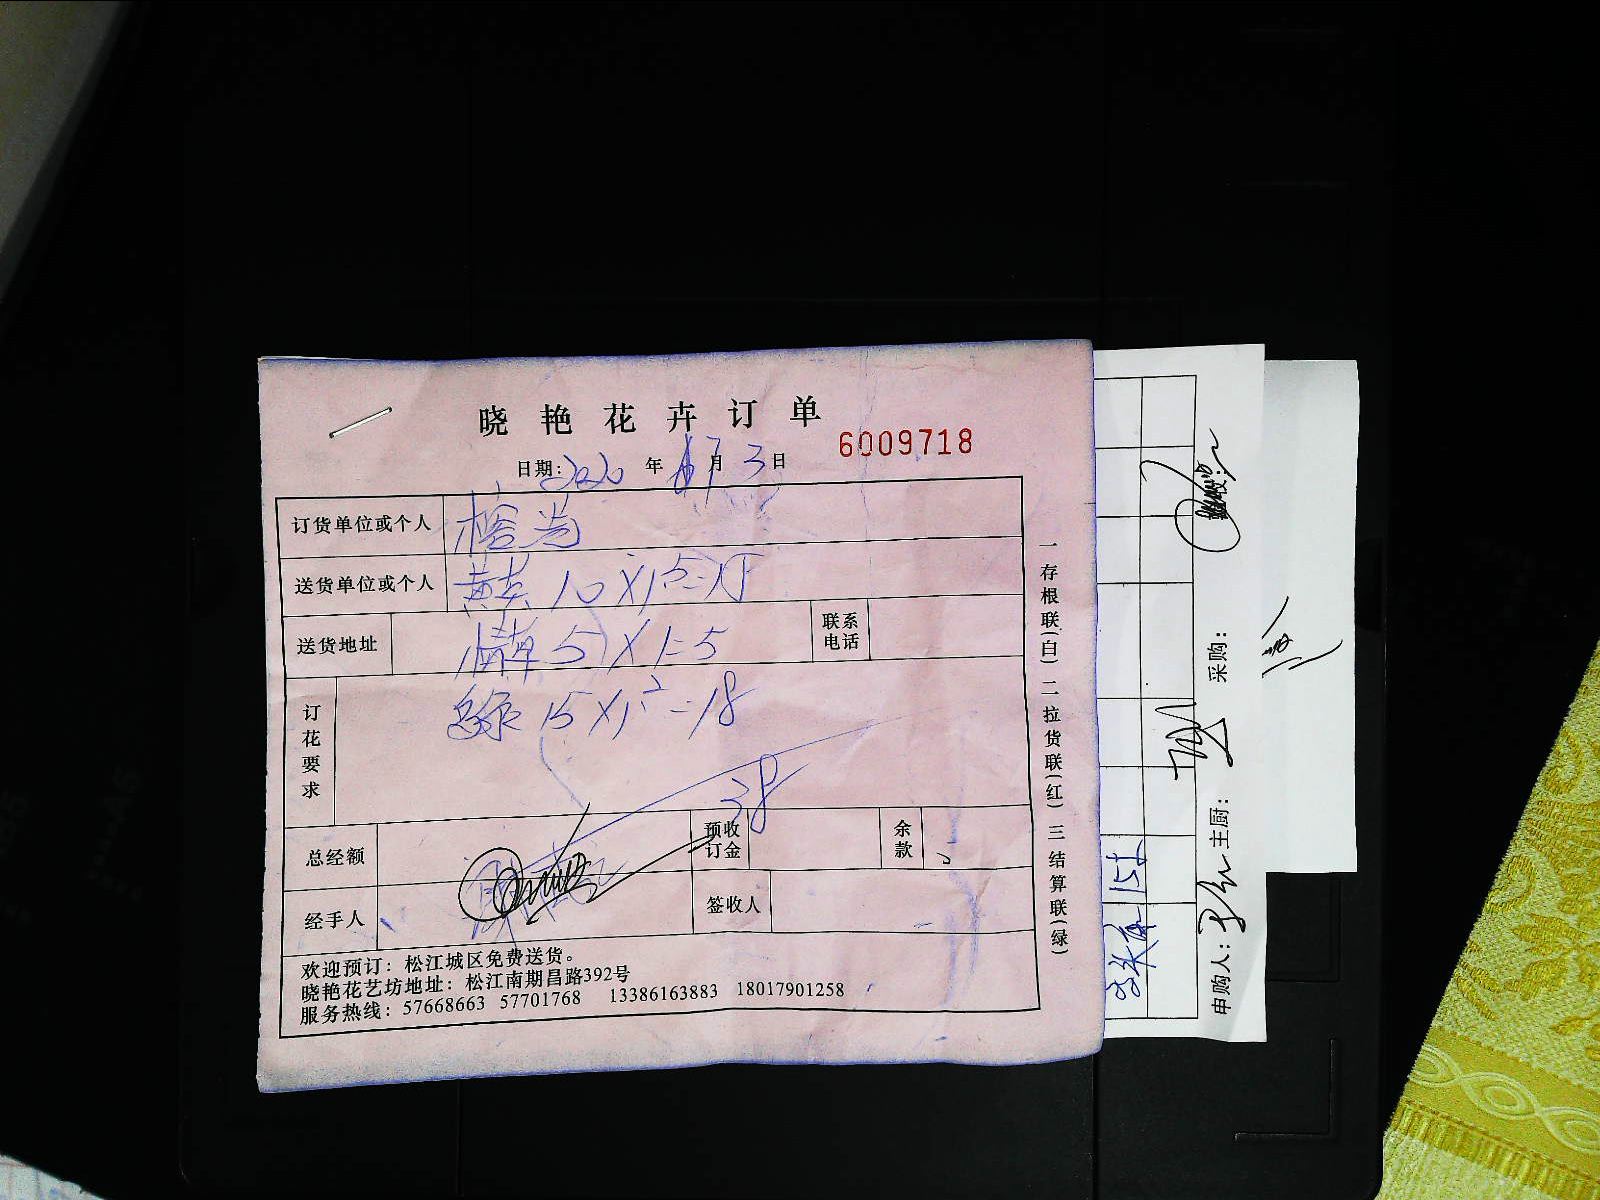 晓艳花卉订单
6009718
日期:2020年7月3日
订货单位或个人
送货单位或个人 10×15=15
送货地址 5×1=5 联系电话
订花要求 15×1.2=18
38
总经额 预收订金 余款
经手人 签收人
欢迎预订：松江城区免费送货。
晓艳花艺坊地址：松江南期昌路392号
服务热线：57668663 57701768 13386163883 18017901258
一存根联(白) 二拉货联(红) 三结算联(绿)
申购人: 主厨: 采购: